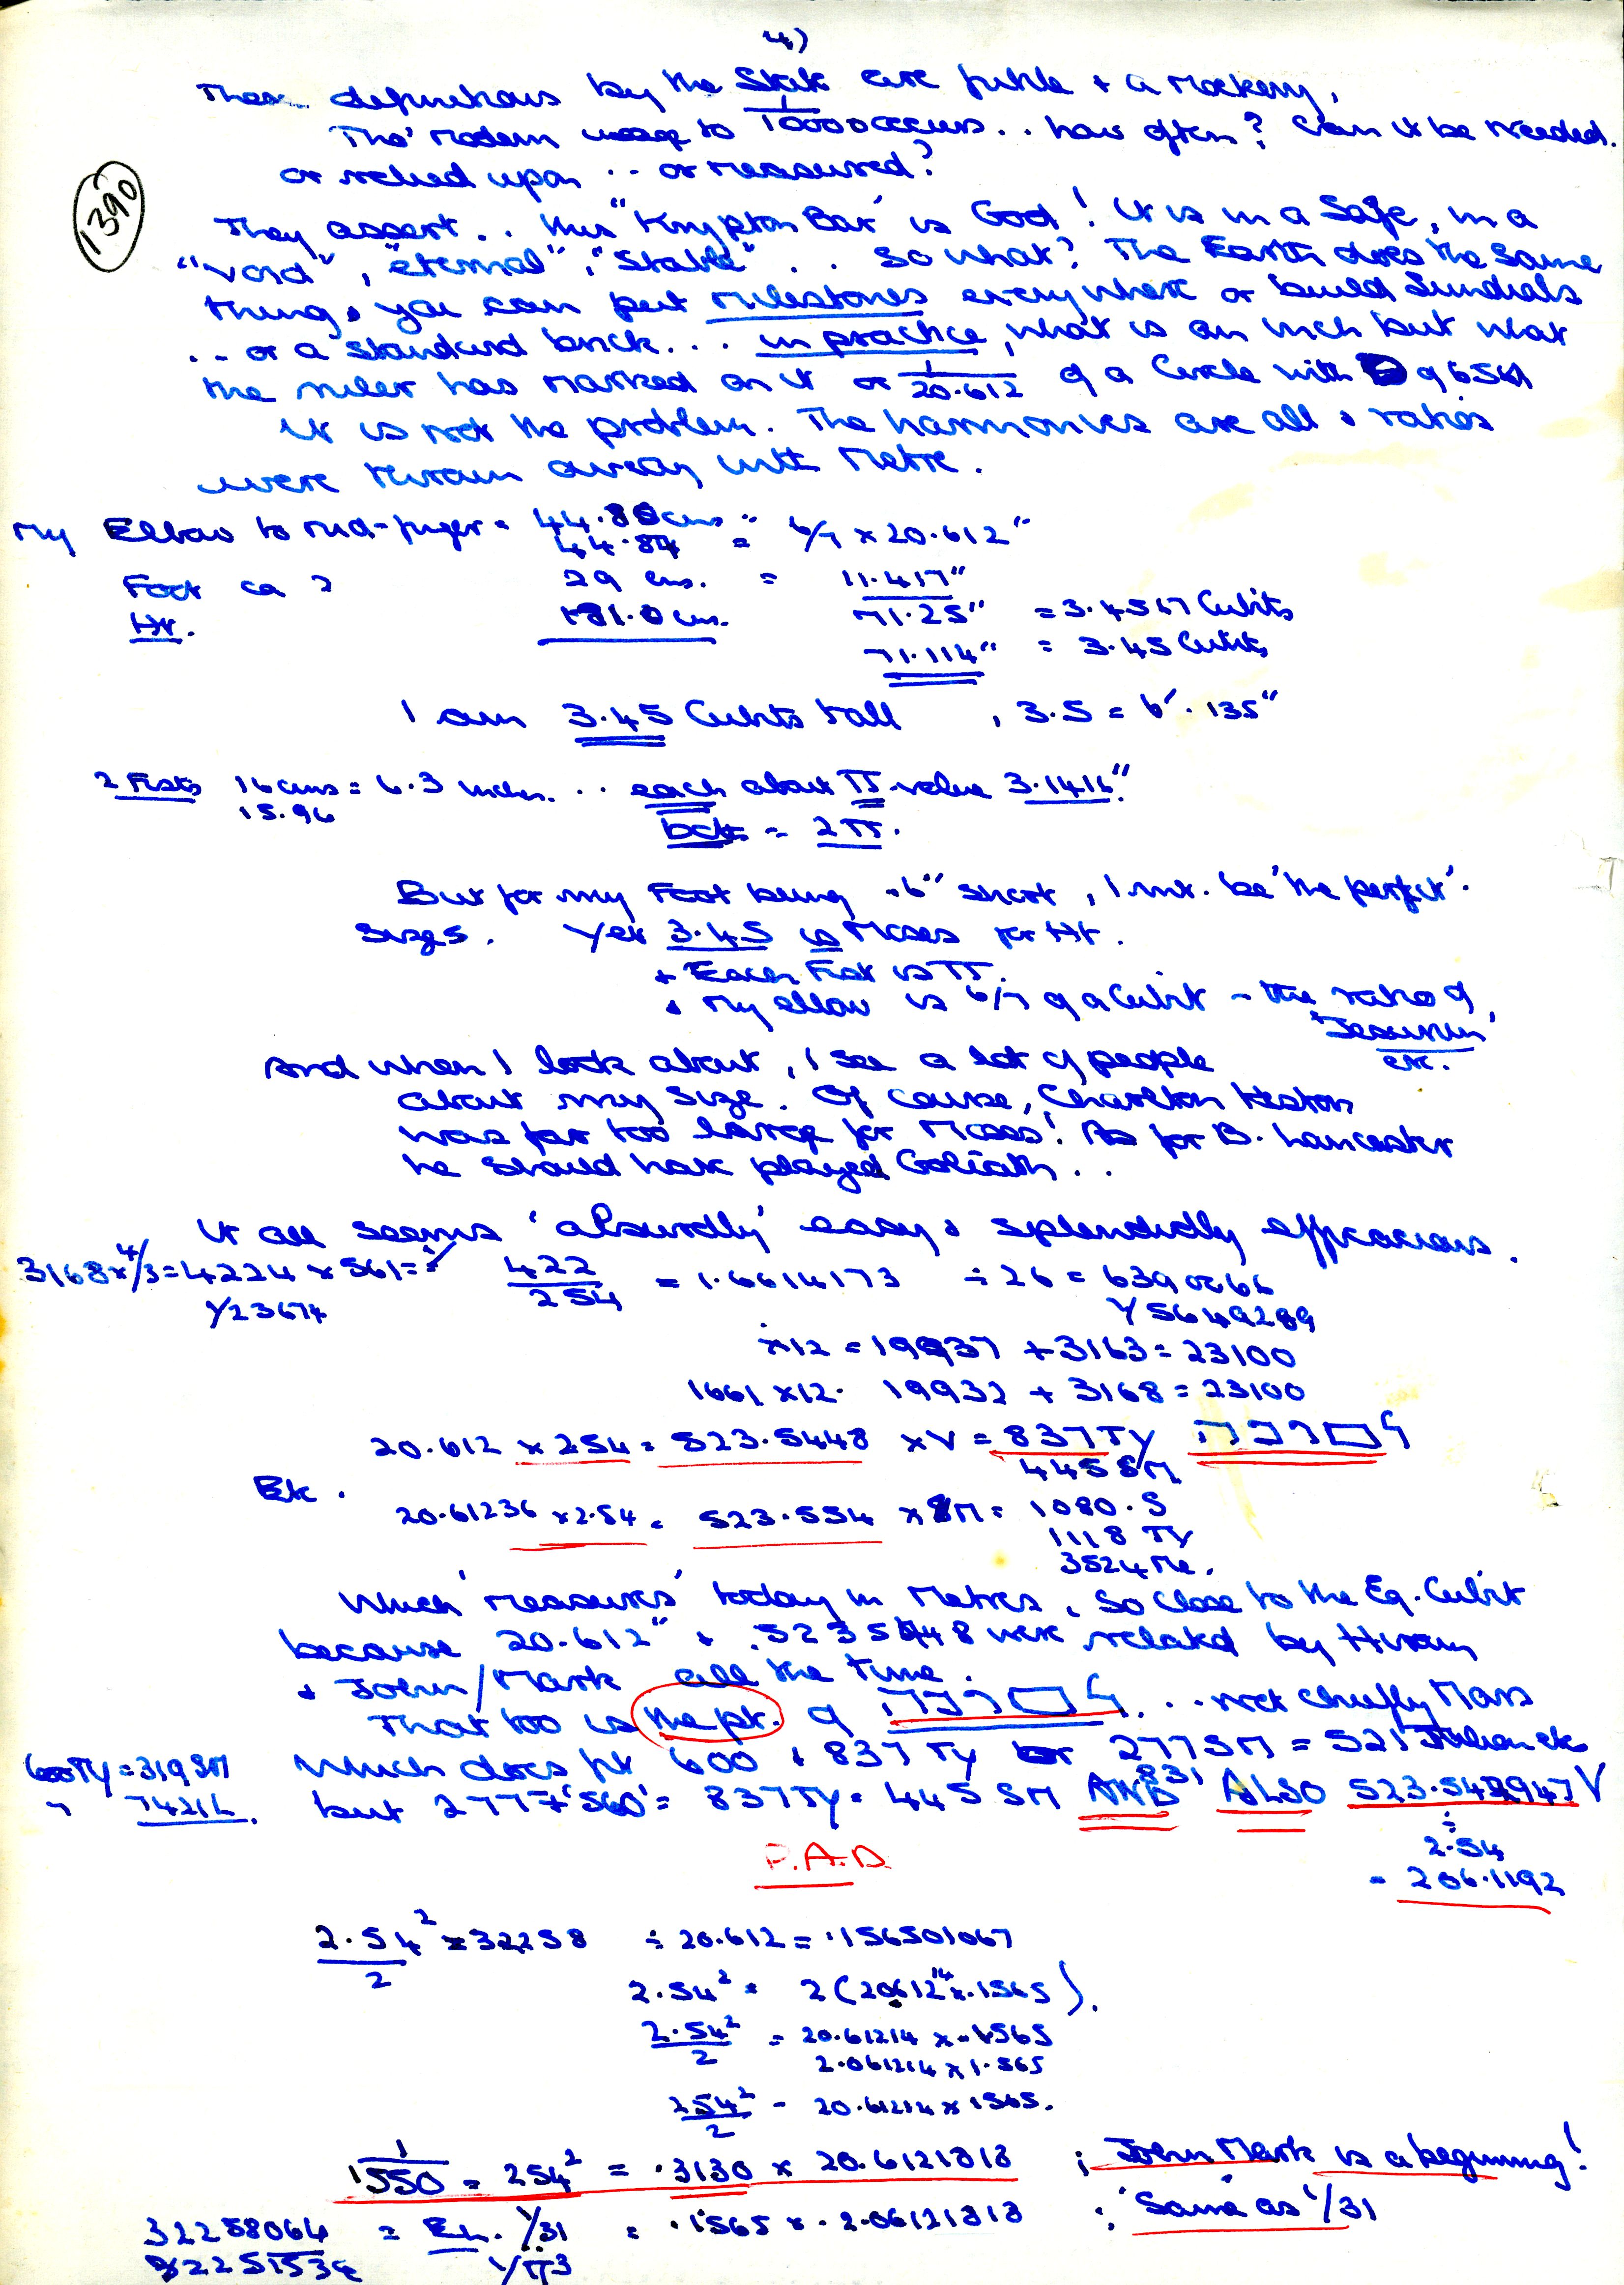 4)
These definitions by the State are futile + a mockery,
The modern usage to 1/10000 occurs .. how often? Can it be needed.
or relied upon .. or measured?
1390
They assert .. this "Krypton Bar" is God! It is in a Safe, in a
"void", "eternal", "Stable" .. So what? The Earth does the same
thing, you can put milestones everywhere or build Sundials
.. or a standard brick... in practice, what is an inch but what
the ruler has marked on it or 1/20.612 of a Circle with
It is not the problem. The harmonies are all + ratios
were thrown away with Metre.
My Elbow to mid-finger = 44.80 cms
44.87 = 6/7 x 20.612"
Foot ca ? 29 cms. = 11.417"
Ht. 181.0 cm. 71.25" = 3.4567 Cubits
71.114" = 3.45 Cubits
I am 3.45 Cubits tall , 3.5 = 6'. 135"
2 Fists 16 cms = 6.3 inches. .. each about π value 3.1416"
15.96
both = 2π.
But for my Foot being .6" short, I mt. be 'the perfect'
sizes. Yet 3.45 is Moses for Ht.
+ Each Fist is π.
+ my elbow is 6/7 of a Cubit - the ratio of
etc.
And when I look about, I see a lot of people
about my size. Of course, Charlton Heston
was far too large for Moses! As for B. Lancaster
he should have played Goliath ..
It all seems 'absurdly' easy + splendidly efficacious.
3168 x 4/3 = 4224 x 561 =
422/254 = 1.6614173 ÷ 26 = 6390066
Y23674
Y5649289
x12 = 19937 + 3163 = 23100
1661 x12. 19932 + 3168 = 23100
20.612 x 254 = 523.5448 x V = 837TY
445 SM
Ek.
20.61236 x 2.54 = 523.554 x SM = 1080.5
1118 TY
3524 Me.
Which 'measures' today in Metres, so close to the Eg. Cubit
because 20.612" + .5235448 were related by Hiram
+ John/Mark all the time.
That too is the pt. of ... not chiefly Mars
600TY = 319SM
Which does fit 600 + 837 TY or 277SM = 521
" 7421L.
but 2777 + '560' = 837TY = 445 SM AND 831 ALSO 523.542947 V
÷
2.54
= 206.1192
P.A.D.
2.54²/2 = 32258 ÷ 20.612 = .156501067
2.54² = 2(20612" x .1565).
2.54²/2 = 20.61214 x .1565
2.061214 x 1.565
254²/2 = 20.61214 x 1565.
1/1550 = 254² = .3130 x 20.6121313 ; John Mark is a beginning!
32258064 = Ek. 1/31 = .1565 x .2.06121313 ; 'Same as' 1/31
1/π³